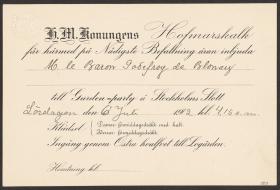 H. M. Konungens Hofmarskalk
får härmed på Nådigste Befallning äran inbjuda
M. le Baron Godefroy de Blonay
till Garden-party å Stockholms Slott
Lördagen den 6 Juli 1912 kl. 4,15 e.m.
Klädsel Damer: förmiddagsdräkt med hatt.
Herrar: förmiddagsdräkt.
Ingång genom Östra hvalfvet till Logården.
Hemtning kl.